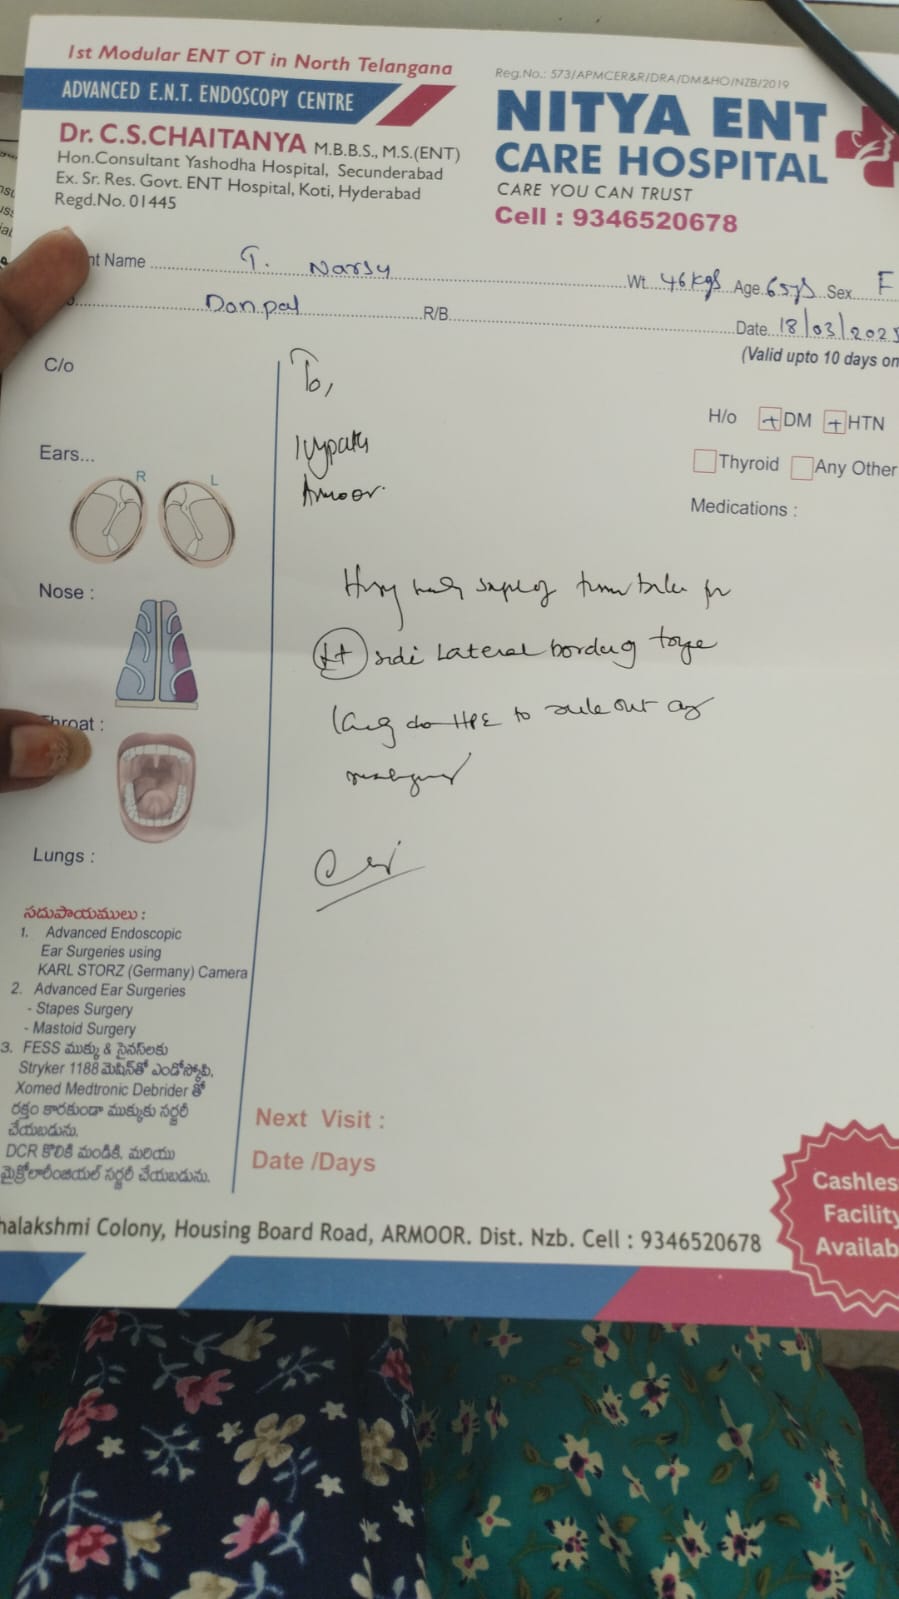 1st Modular ENT OT in North Telangana
ADVANCED E.N.T. ENDOSCOPY CENTRE
Dr. C.S.CHAITANYA M.B.B.S., M.S.(ENT)
Hon.Consultant Yashodha Hospital, Secunderabad
Ex. Sr. Res. Govt. ENT Hospital, Koti, Hyderabad
Regd.No. 01445
Reg.No.: 573/APMCER&R/DRA/DM&HO/NZB/2019
NITYA ENT
CARE HOSPITAL
CARE YOU CAN TRUST
Cell : 9346520678
nt Name T. Narsu Wt. 46 kgs Age. 65ys Sex F
Donpal R/B. Date. 18/03/202
(Valid upto 10 days on
C/o
To,
Armoor.
H/o + DM + HTN
Thyroid Any Other
Medications :
Ears...
R L
Nose :
side Lateral border of tongue
do HPE to rule out any
Throat :
Lungs :
సదుపాయములు :
1. Advanced Endoscopic
Ear Surgeries using
KARL STORZ (Germany) Camera
2. Advanced Ear Surgeries
- Stapes Surgery
- Mastoid Surgery
3. FESS ముక్కు & సైనస్‌లకు
Stryker 1188 మెషిన్‌తో ఎండోస్కోపి,
Xomed Medtronic Debrider తో
రక్తం కారకుండా ముక్కుకు సర్జరీ
చేయబడును.
DCR కొలికి మండికి, మరియు
మైక్రోలారింజియల్ సర్జరీ చేయబడును.
Next Visit :
Date /Days
halakshmi Colony, Housing Board Road, ARMOOR. Dist. Nzb. Cell : 9346520678
Cashles
Facility
Availab